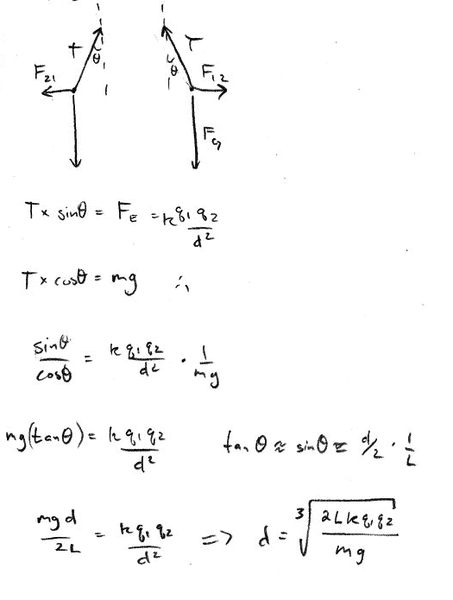 T θ T θ
F₂₁ F₁₂
F_g
T × sinθ = F_E = k q₁ q₂ / d²
T × cosθ = mg ∴
sinθ / cosθ = k q₁ q₂ / d² · 1 / mg
mg(tanθ) = k q₁ q₂ / d² tan θ ≈ sinθ = d/2 · 1/L
mg d / 2L = k q₁ q₂ / d² => d = ³√(2Lk q₁ q₂ / mg)